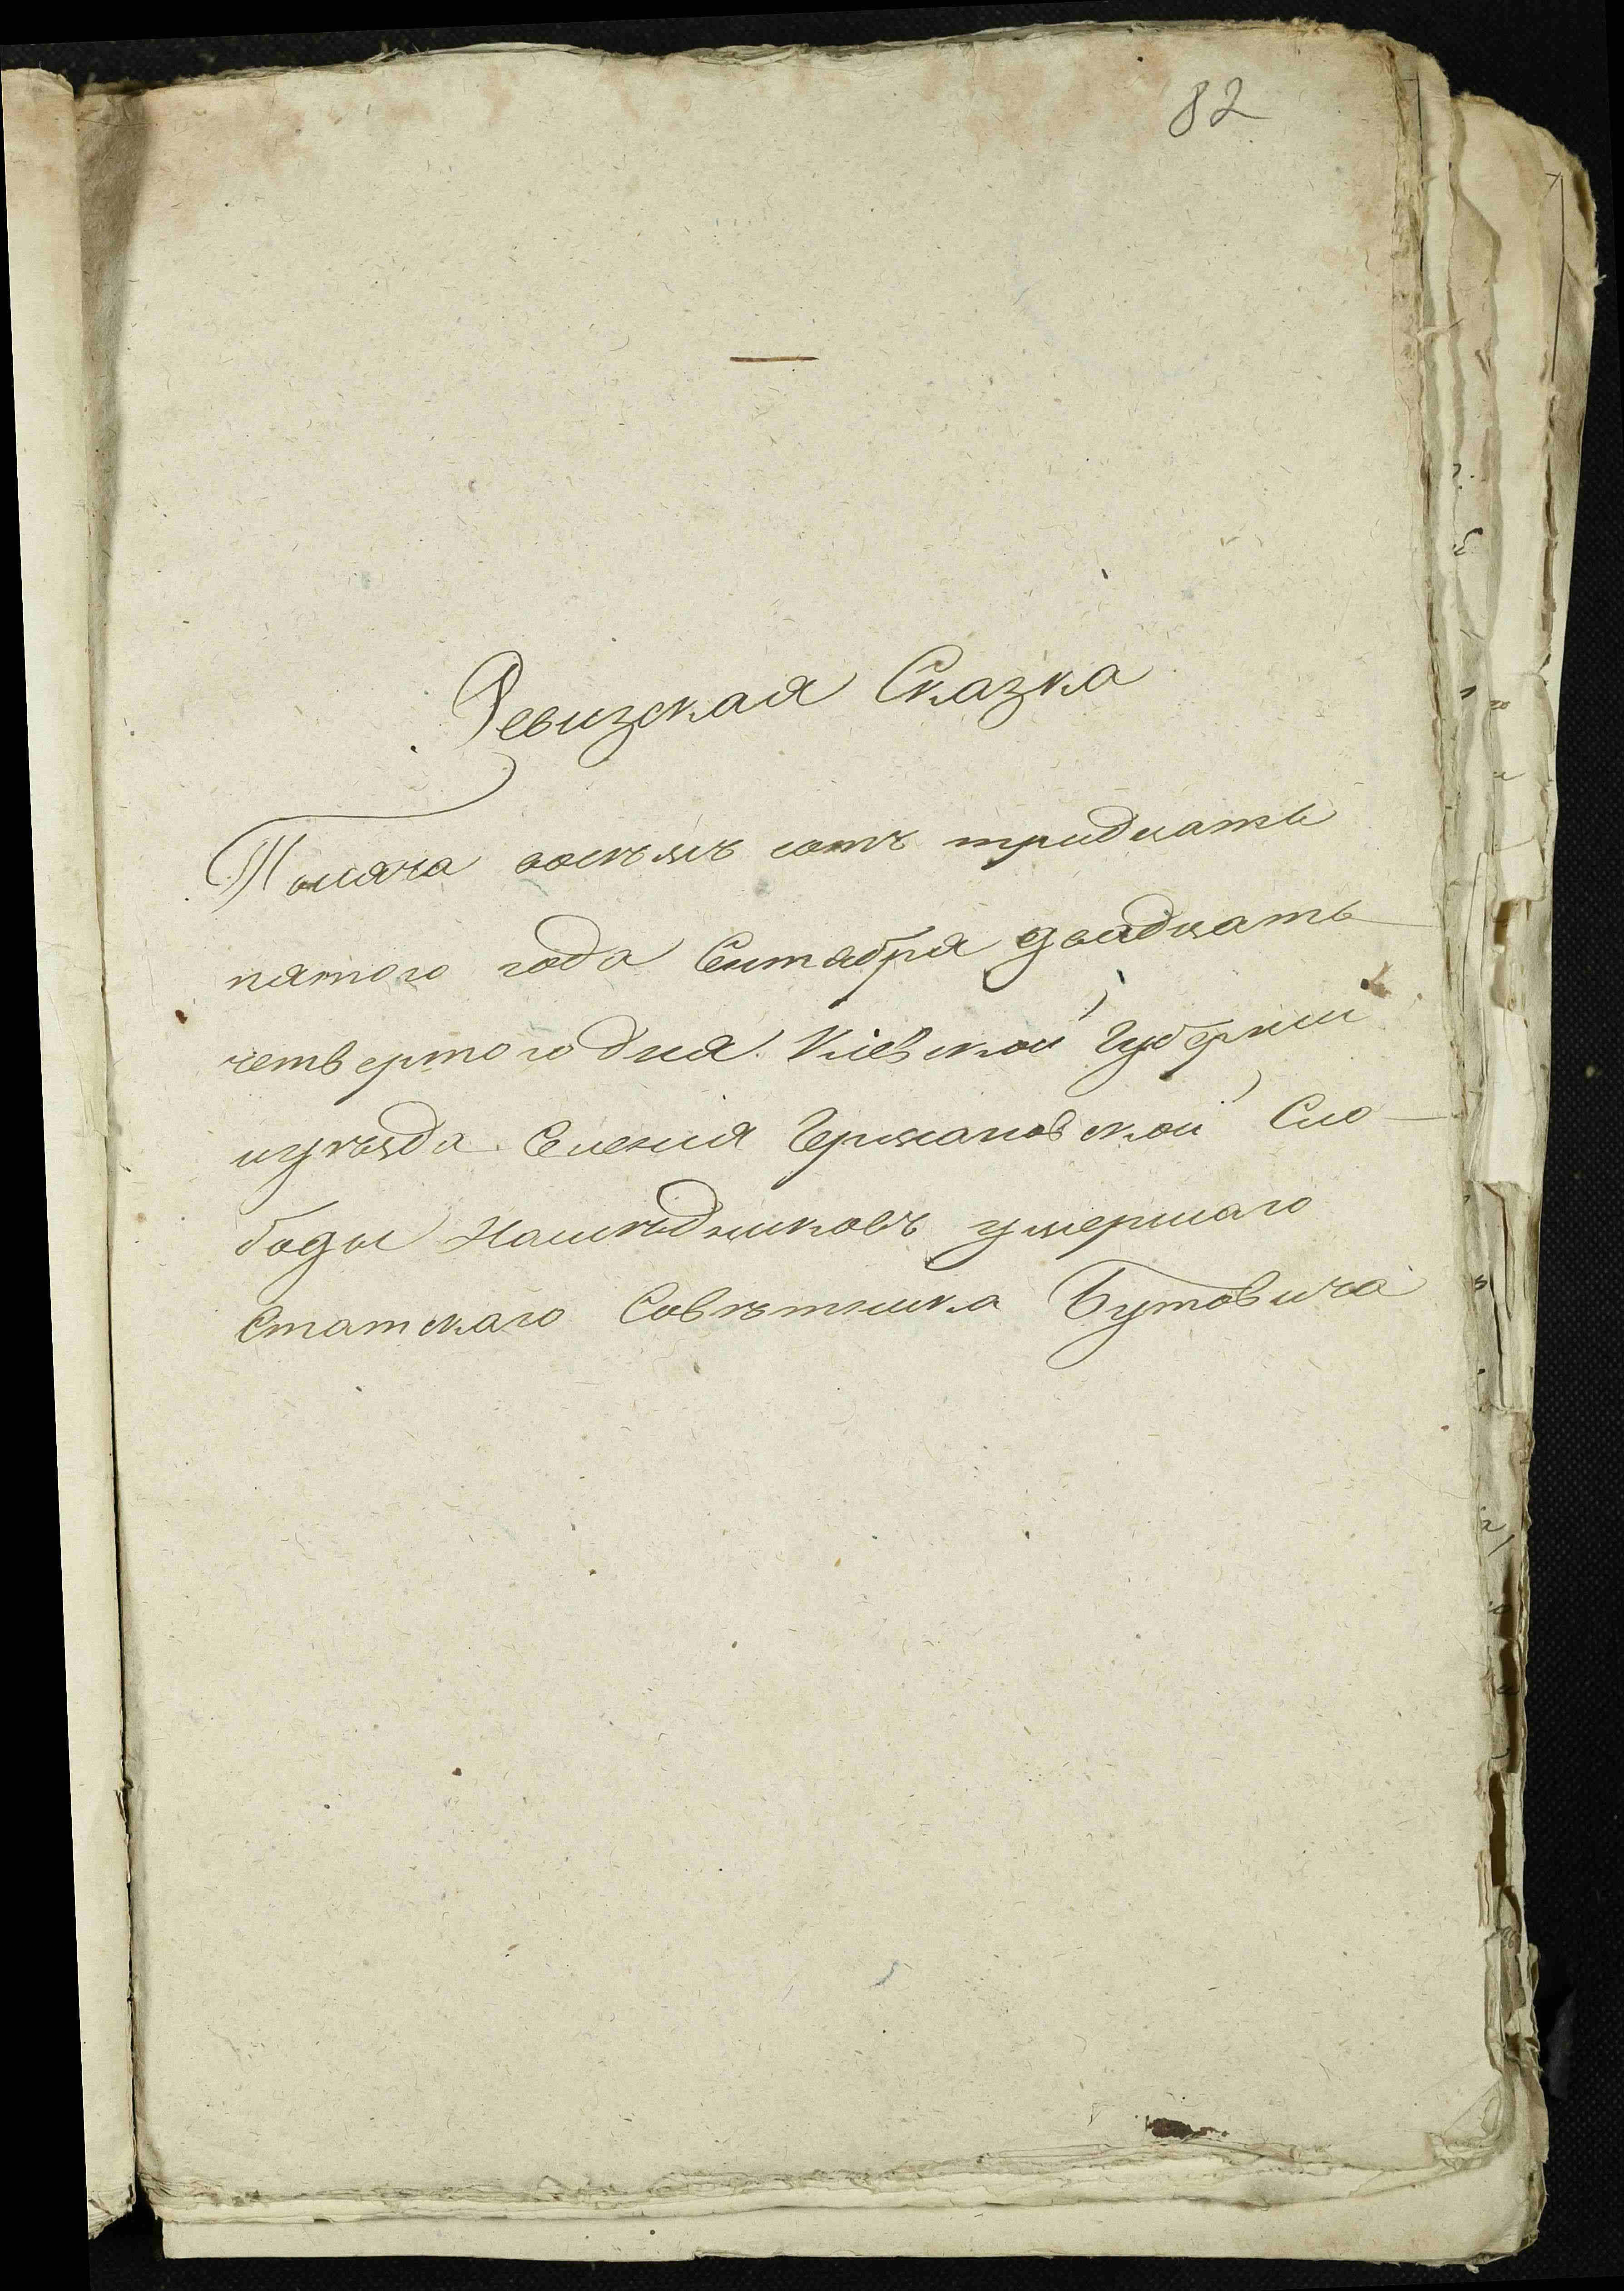 82
Ревизская Сказка
Тысяча восѣмъ сотъ тридцать
пятого года Сентября двадцать
четвертого дня. Кіевской Губерніи
и уѣзда Селенія Германовской Сло-
боды Наслѣдниковъ умершаго
Статскаго Совѣтника Бутовича